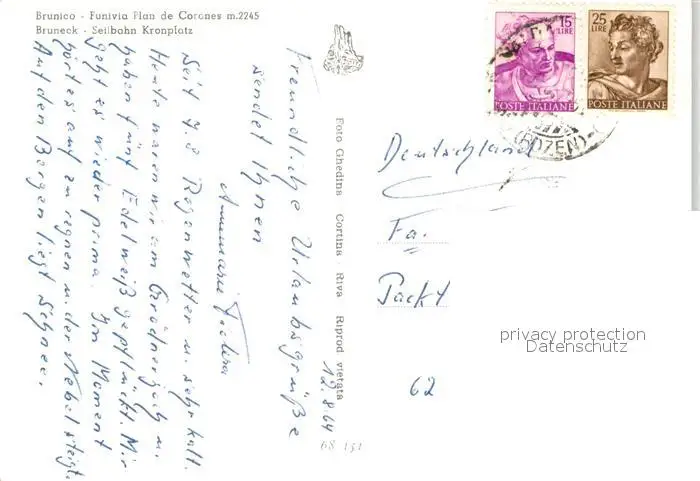 Brunico - Funivia Plan de Corones m.2245
Bruneck - Seilbahn Kronplatz
12.8.64
Freundliche Urlaubsgrüße
sendet Ihnen
Annmarie
Seit 7.8 Regenwetter u. sehr kalt.
Heute waren wir am Grödnerjoch u.
haben fünf Edelweiß gepflückt. Mir
geht es wieder prima. Im Moment
hört es auf zu regnen u. der Nebel steigt.
Auf den Bergen liegt Schnee.
Foto Ghedina Cortina - Riva Riprod vietata
68 151
15
LIRE
POSTE ITALIANE
25
LIRE
POSTE ITALIANE
(BOZEN)
Deutschland
Fa.
Packt
62
privacy protection
Datenschutz